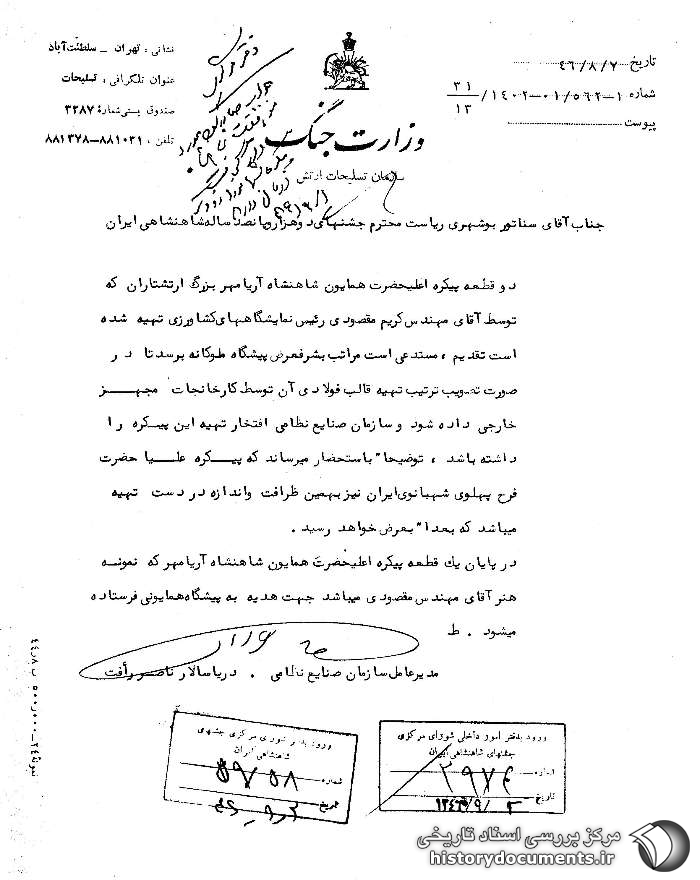 تاریخ ۴۶/۸/۷
شماره ۱-۵۶۲/۰۱-۱۴۰۲/
۳۱
۱۳
پیوست
نشانی ، تهران - سلطنت آباد
عنوان تلگرافی ، تسلیحات
صندوق پستی شمارهٔ ۳۲۸۷
تلفن ، ۸۸۱۰۳۱-۸۸۱۳۷۸
وزارت جنگ
سازمان تسلیحات ارتش
جناب آقای سناتور بوشهری ریاست محترم جشنهای دو هزار و پانصد ساله شاهنشاهی ایران
دو قطعه پیکره اعلیحضرت همایون شاهنشاه آریا مهر بزرگ ارتشتاران که
توسط آقای مهندس کریم مقصودی رئیس نمایشگاههای کشاورزی تهیه شده
است تقدیم ، مستدعی است مراتب بشرفعرض پیشگاه ملوکانه برسد تا در
صورت تصویب ترتیب تهیه قالب فولادی آن توسط کارخانجات مجهز
خارجی داده شود و سازمان صنایع نظامی افتخار تهیه این پیکره را
داشته باشد ، توضیحا" باستحضار میرساند که پیکره علیا حضرت
فرح پهلوی شهبانوی ایران نیز بهمین ظرافت و اندازه در دست تهیه
میباشد که بعدا" بعرض خواهد رسید .
در پایان یک قطعه پیکره اعلیحضرت همایون شاهنشاه آریا مهر که نمونه
هنر آقای مهندس مقصودی میباشد جهت هدیه به پیشگاه همایونی فرستاده
میشود . ط
مدیر عامل سازمان صنایع نظامی . دریاسالار ناصر رأفت
ورود بدفتر امور داخلی شورای مرکزی
جشنهای شاهنشاهی ایران
شماره ۲۹۷۴
تاریخ
ورود بدفتر شورای مرکزی جشنهای
شاهنشاهی ایران
شماره
تاریخ
مرکز بررسی اسناد تاریخی
historydocuments.ir